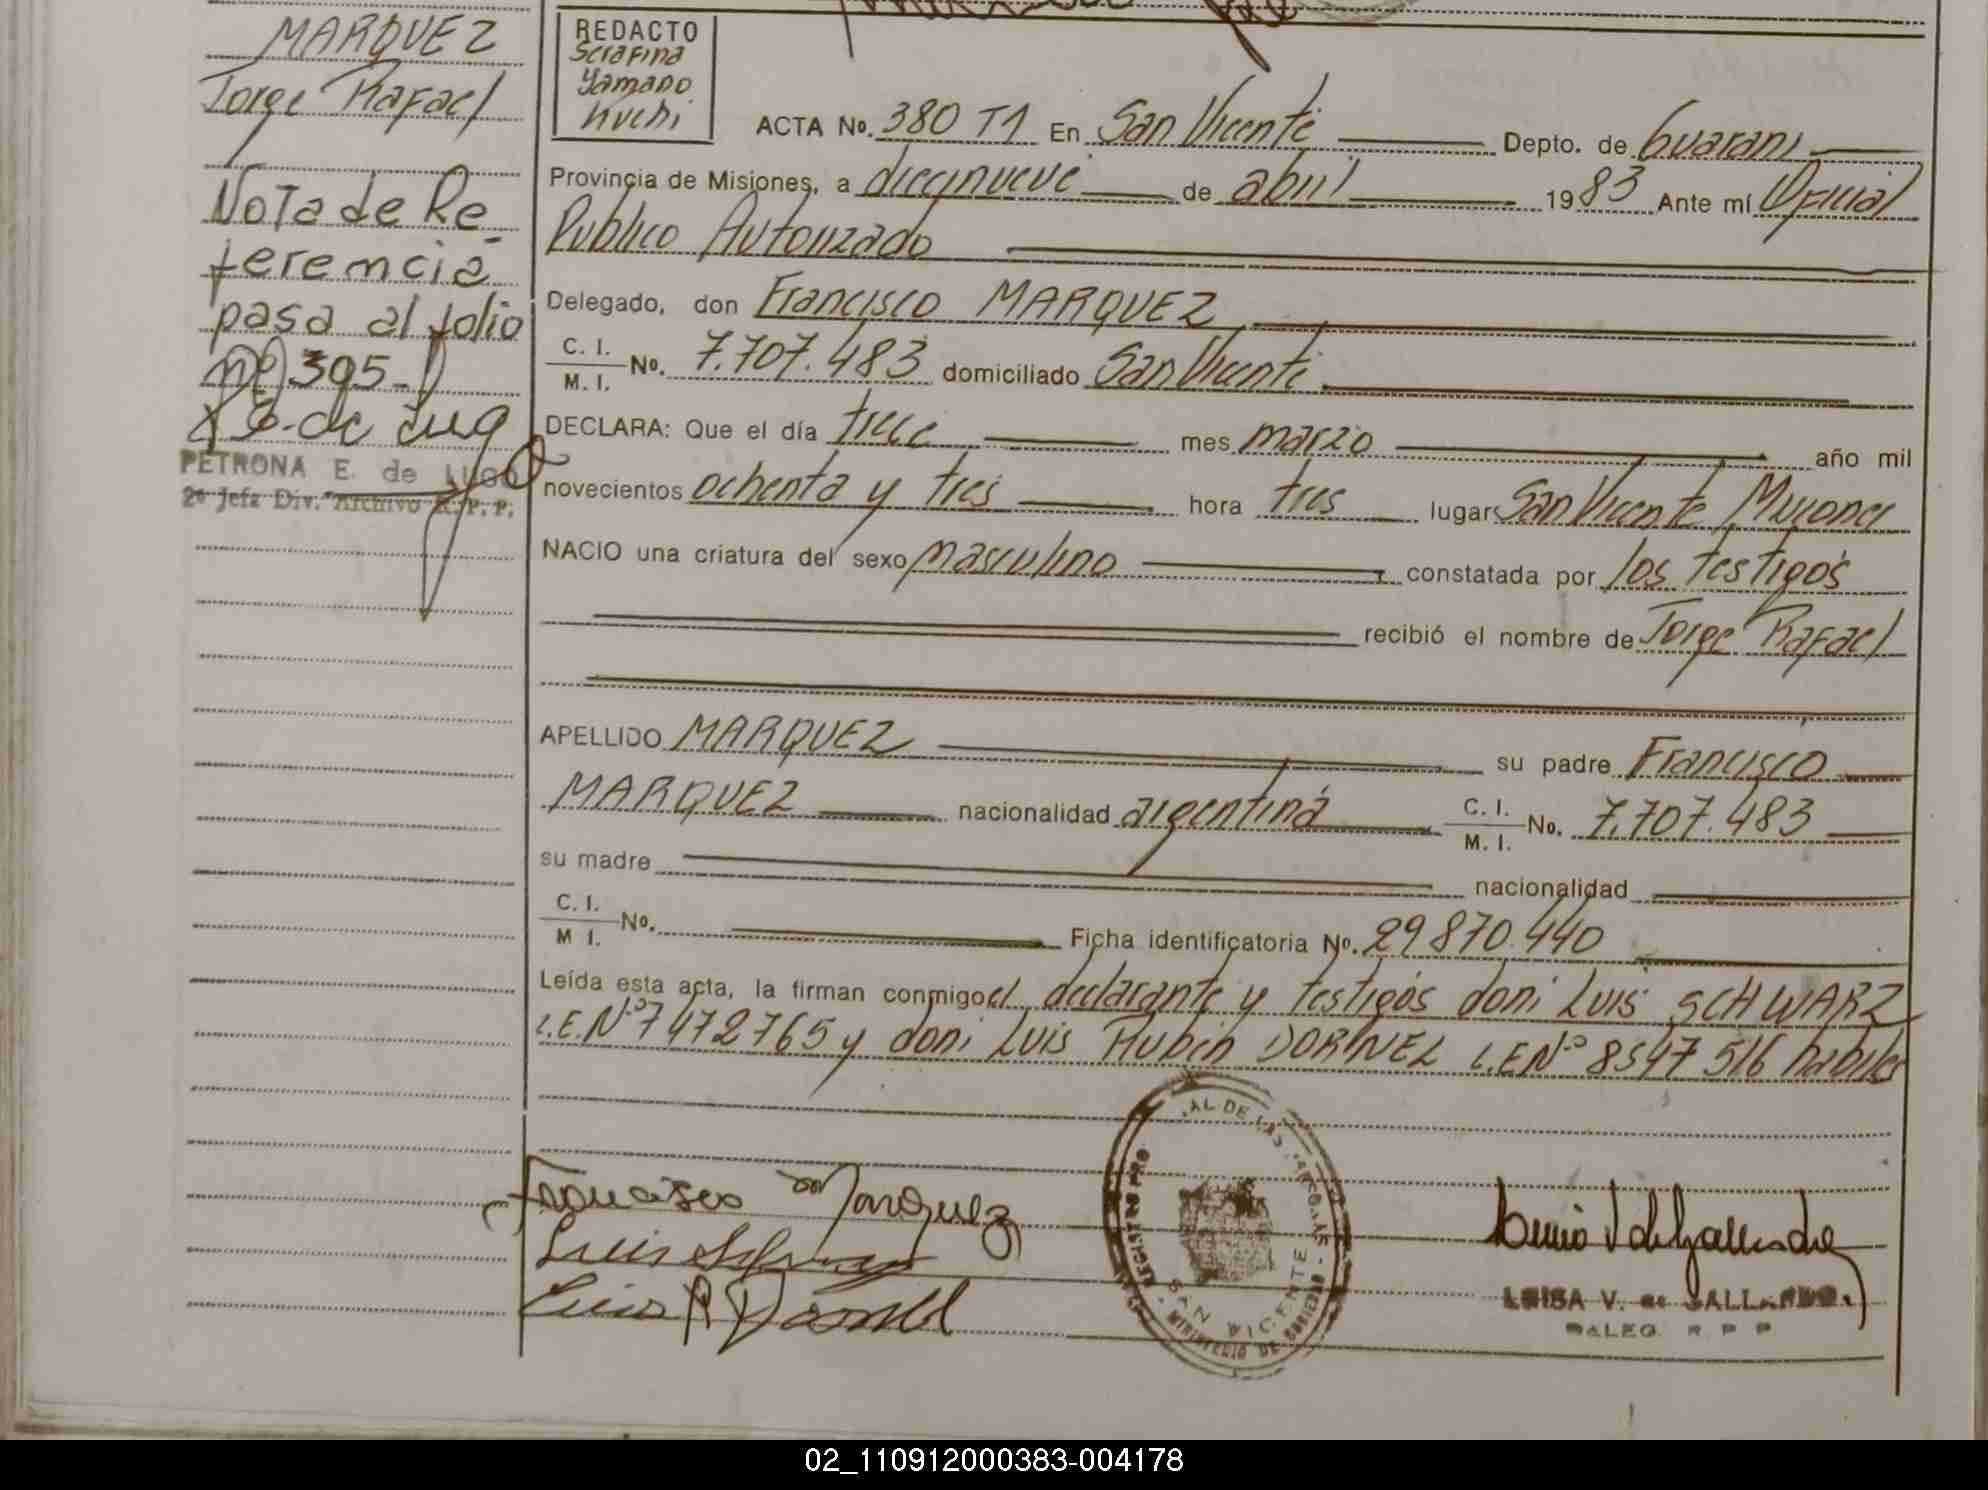 MARQUEZ
Jorge Rafael
Nota de Re-
ferencia
pasa al folio
nº 395-
E. de Lugo
PETRONA E. de LUGO
2º Jefa Div. Archivo R. P. P.
REDACTO
Serafina
Yamano
Kuchi
ACTA No. 380 T1 En San Vicente Depto. de Guarani
Provincia de Misiones, a diecinueve de abril 1983 Ante mí Oficial
Publico Autorizado
Delegado, don Francisco MARQUEZ
C. I.
M. I. No. 7.707.483 domiciliado San Vicente
DECLARA: Que el día trece mes marzo año mil
novecientos ochenta y tres hora tres lugar San Vicente Misiones
NACIO una criatura del sexo masculino constatada por los testigos
recibió el nombre de Jorge Rafael
APELLIDO MARQUEZ su padre Francisco
MARQUEZ nacionalidad argentina C. I. M. I. No. 7.707.483
su madre nacionalidad
C. I.
M I. No. Ficha identificatoria No. 29870.440
Leída esta acta, la firman conmigo el declarante y testigos don: Luis SCHWARZ
L.E.Nº 7472765 y don: Luis Rubén DORNEL L.E.Nº 8547516 habiles
Francisco Marquez
Luis
Luis R Dornel
REGISTRO PRO AL DE LAS PERSONAS
SAN VICENTE
MINISTERIO DE GOBIERNO
LUISA V. de GALLARDO
DALEG. R P P
02_110912000383-004178